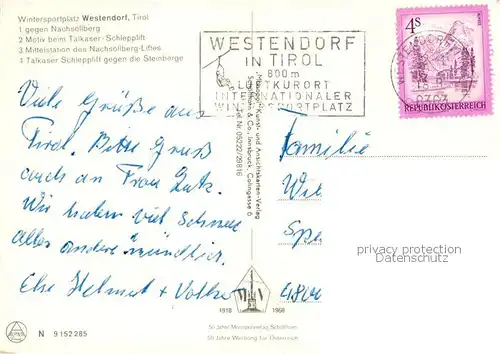 Wintersportplatz Westendorf, Tirol
1 gegen Nachsöllberg
2 Motiv beim Talkaser-Schlepplift
3 Mittelstation des Nachsöllberg-Liftes
4 Talkaser Schlepplift gegen die Steinberge
WESTENDORF
IN TIROL
800m
LUFTKURORT
INTERNATIONALER
WINTERSPORTPLATZ
4 S
REPUBLIK ÖSTERREICH
Viele Grüße aus
Tirol. Bitte Gruß
auch an Frau Lutz.
Wir haben viel Schnee
alles andere mündlich.
Else Helmut + Volker
Familie
privacy protection
Datenschutz
Kunst- und Ansichtskarten-Verlag
& Co., Innsbruck, Colingasse 6
Tel. Nr. 05222/29816
1918 1968
50 Jahre Werbung für Österreich
N 9152285